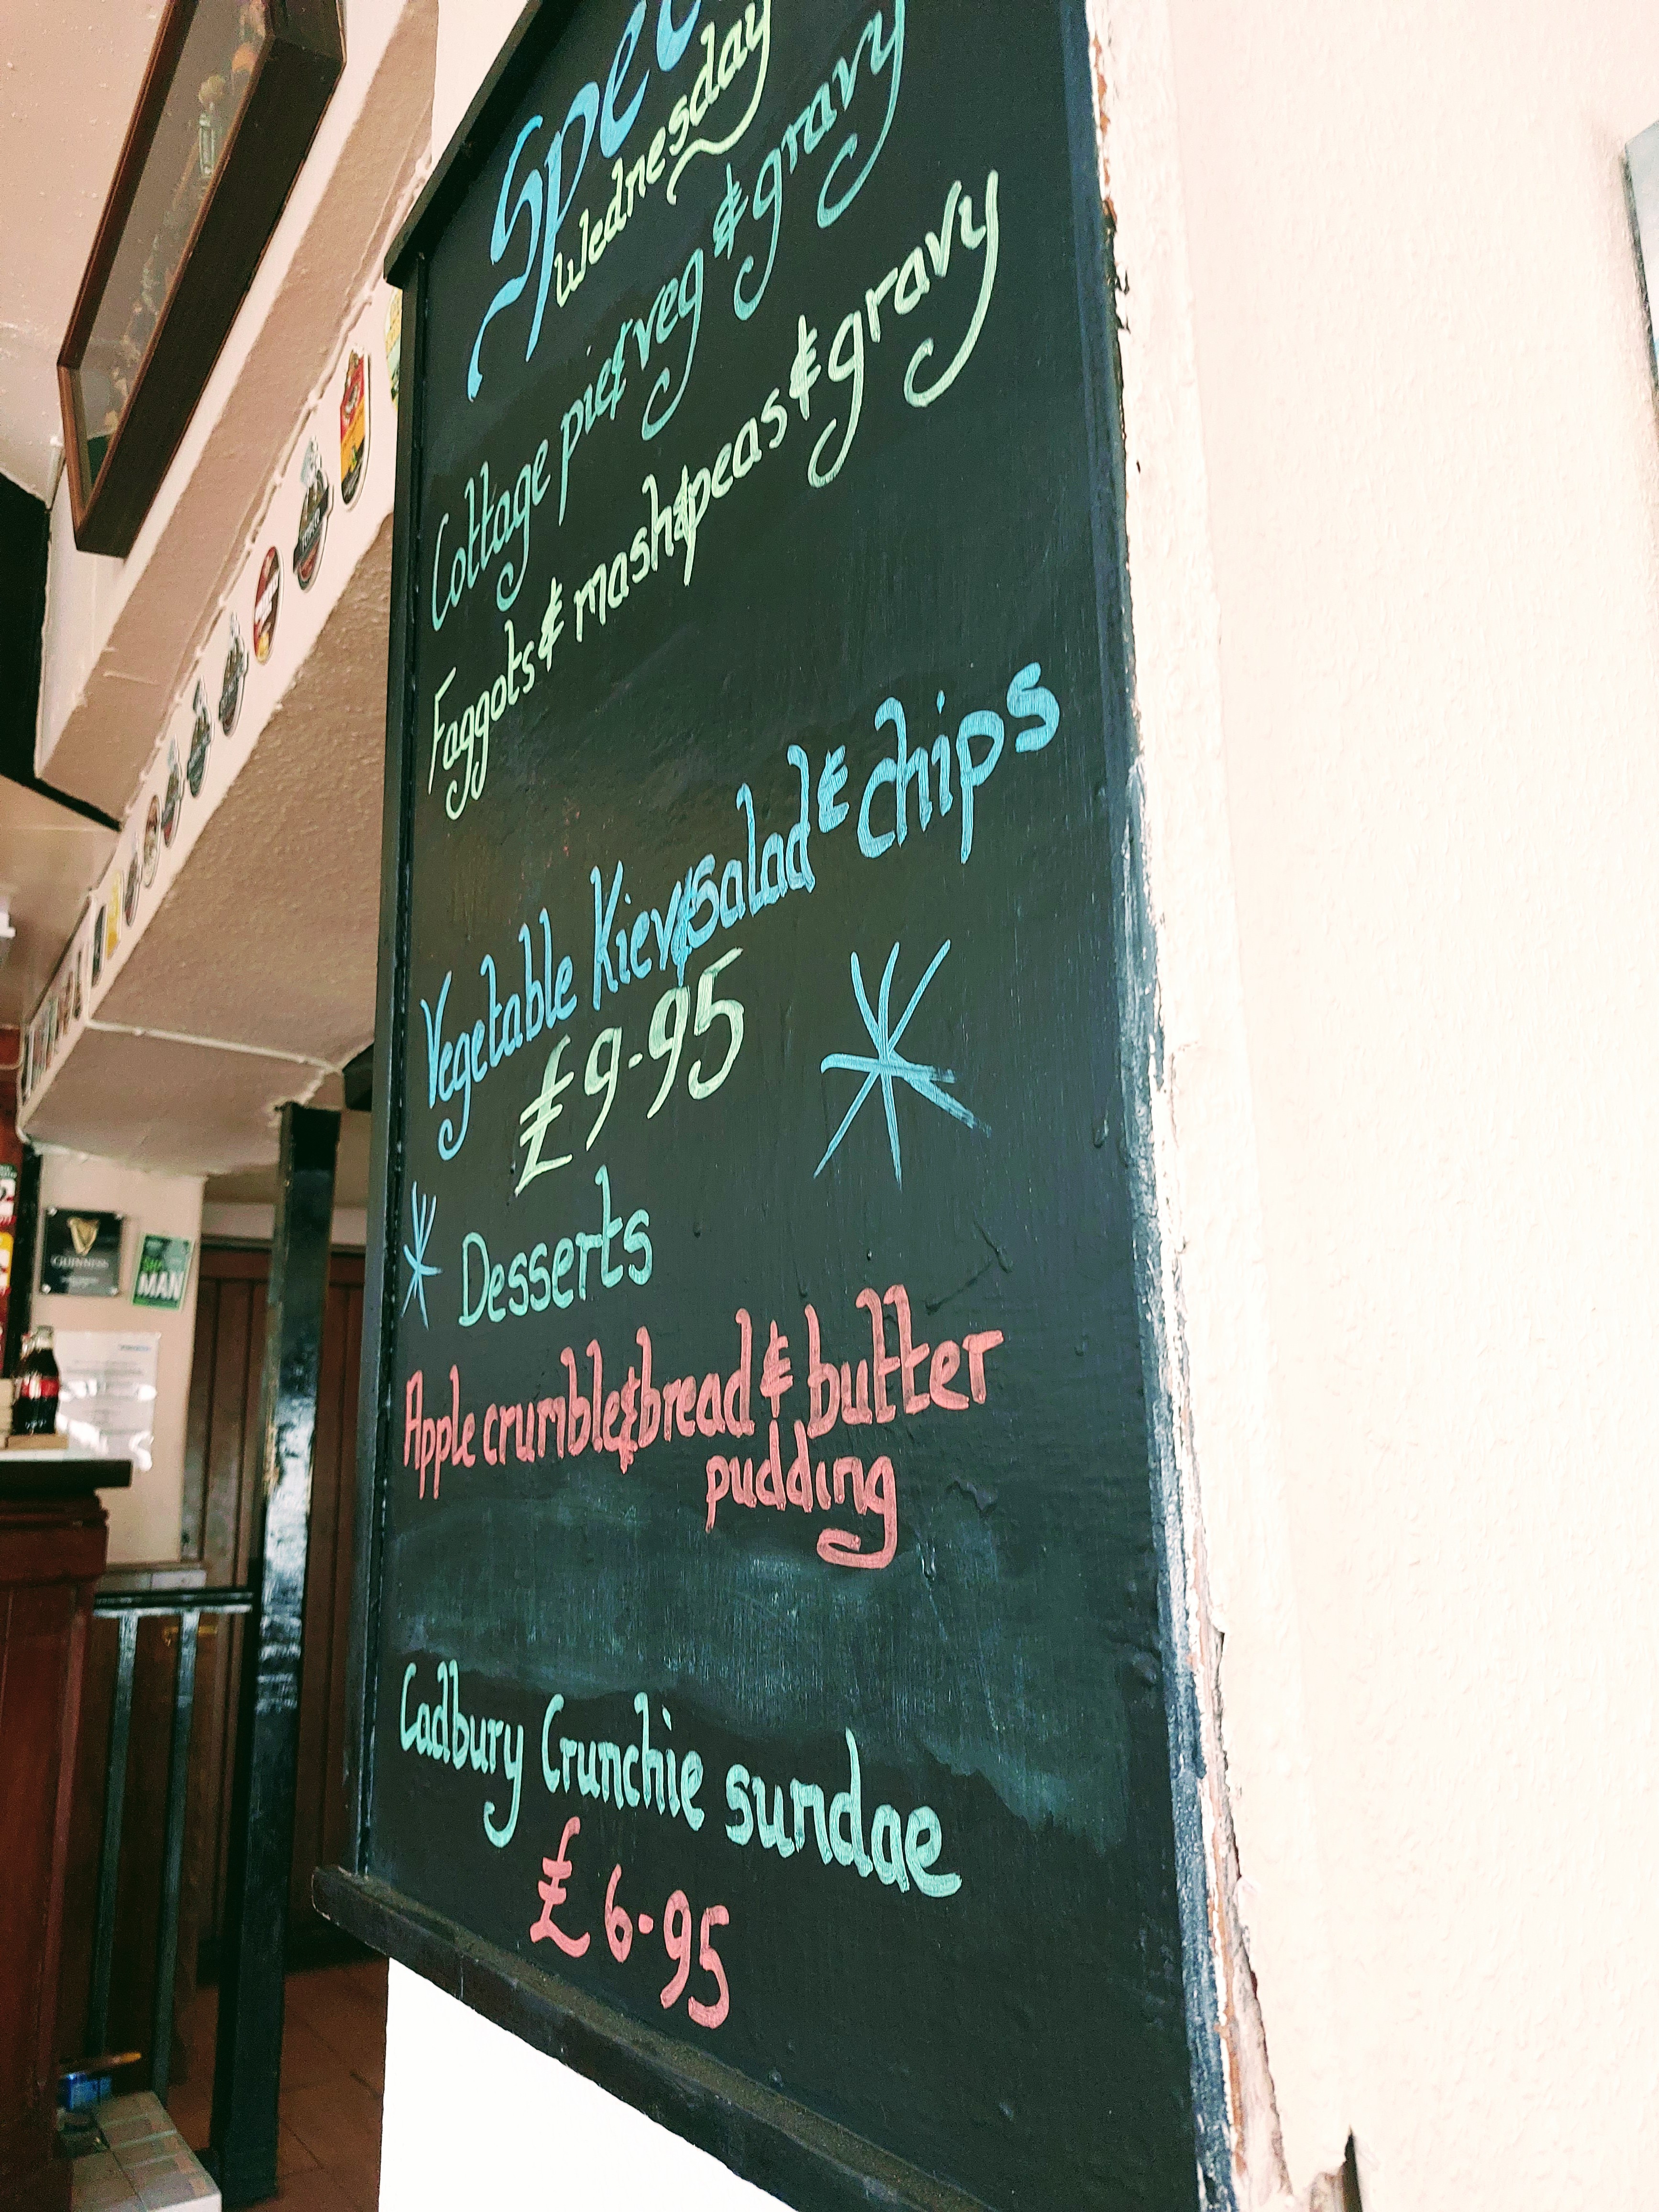 Spec
Wednesday
Cottage pie & veg & gravy
Faggots & mash & peas & gravy
Vegetable Kiev & salad & chips
£9.95
Desserts
Apple crumble & bread & butter
pudding
Cadbury Crunchie sundae
£6.95
GUINNESS
MAN